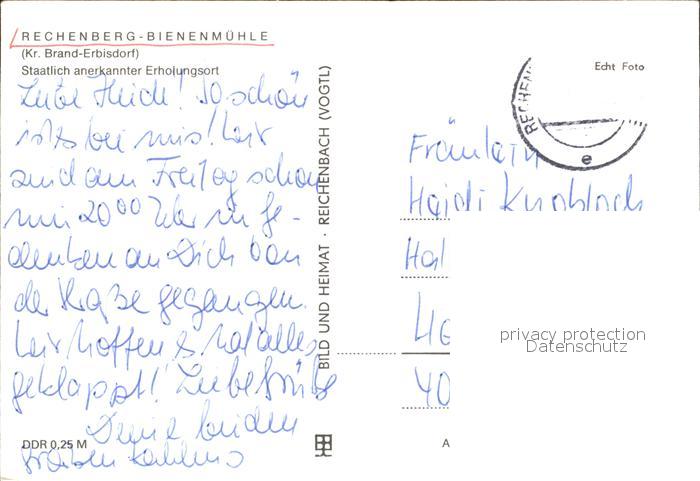 RECHENBERG-BIENENMÜHLE
(Kr. Brand-Erbisdorf)
Staatlich anerkannter Erholungsort
Liebe Heidi! So schön
ists bei uns! Wir
sind am Freitag schon
um 20⁰⁰ Uhr in Ge-
denken an Dich von
der Straße gegangen.
Wir hoffen es hat alles
geklappt! Liebe Grüße
Deine beiden
DDR 0,25 M
BILD UND HEIMAT · REICHENBACH (VOGTL)
Echt Foto
RECHEN
e
Fräulein
Heidi Knobloch
Hal
40
A
privacy protection
Datenschutz